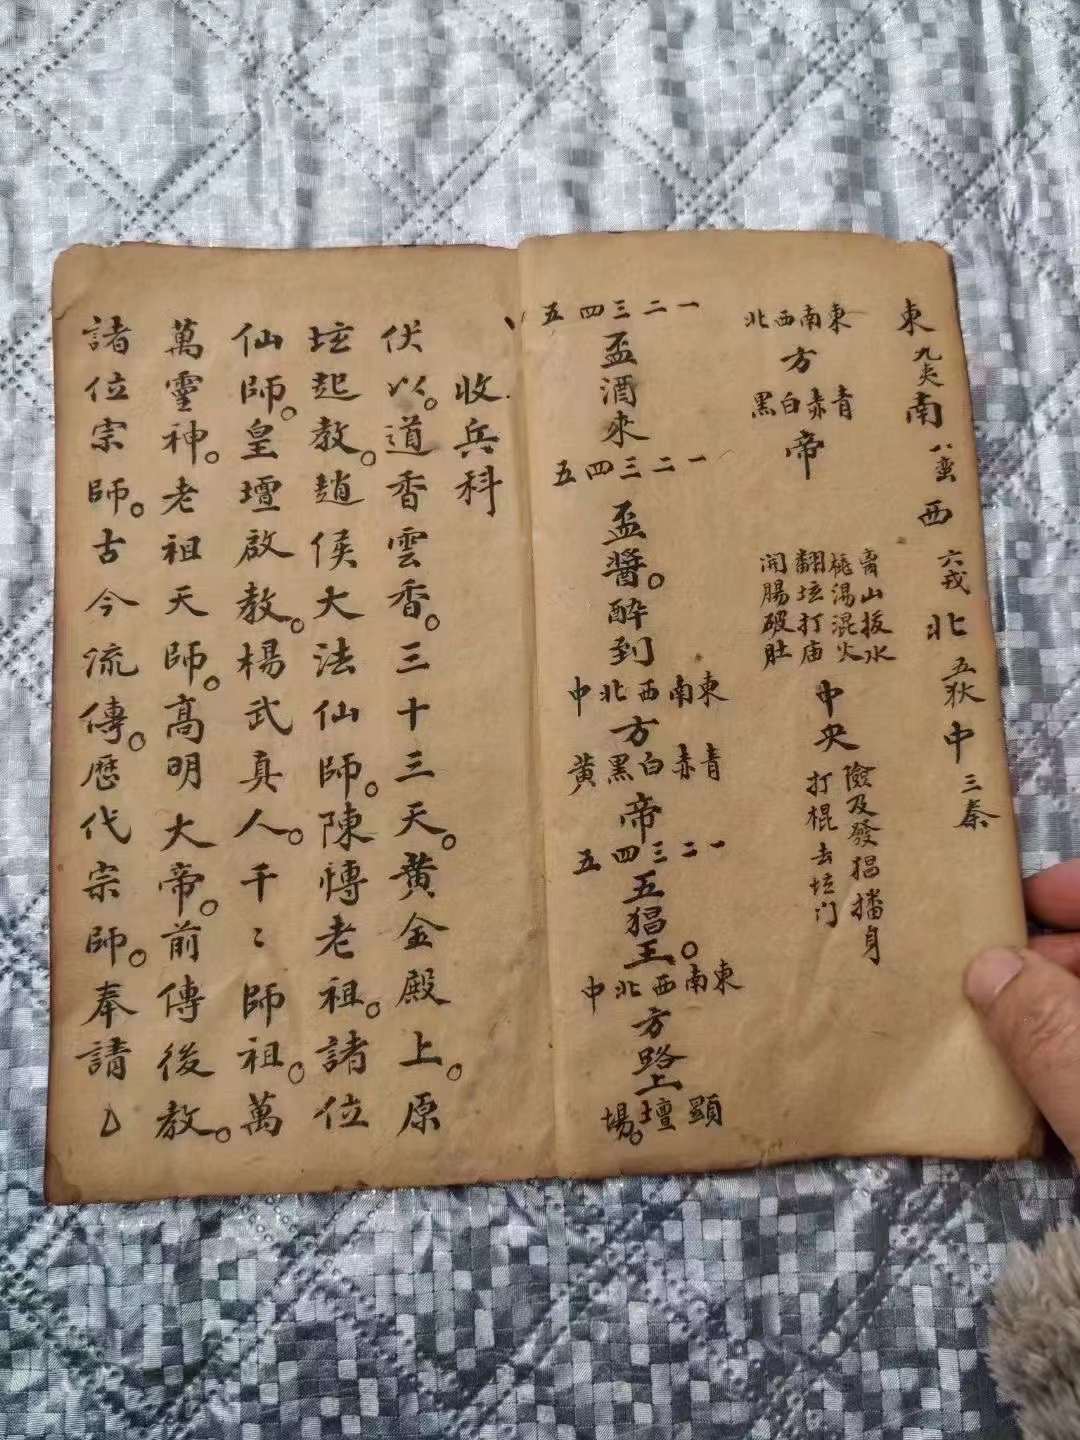 東九夷南八蠻西六戎北五狄中三秦
東南西北
方
青赤白黑
帝
山拔水
湯混火
翻坛打庙
開腸破肚
中央
險及發猖播身
打棍去坛门
一二三四五
盃酒來
一二三四五
盃醬。醉到
東南西北中
方
青赤白黑黃
帝
一二三四五
五猖王。
東南西北中
方路上
顕壇場。
收兵科
伏以。道香雲香。三十三天。黄金殿上。原
坛起教。趙侯大法仙師。陳愽老祖。諸位
仙師。皇壇啟教。楊武真人。千〻師祖。萬
萬靈神。老祖天師。高明大帝。前傳後教。
諸位宗師。古今流傳。歷代宗師。奉請